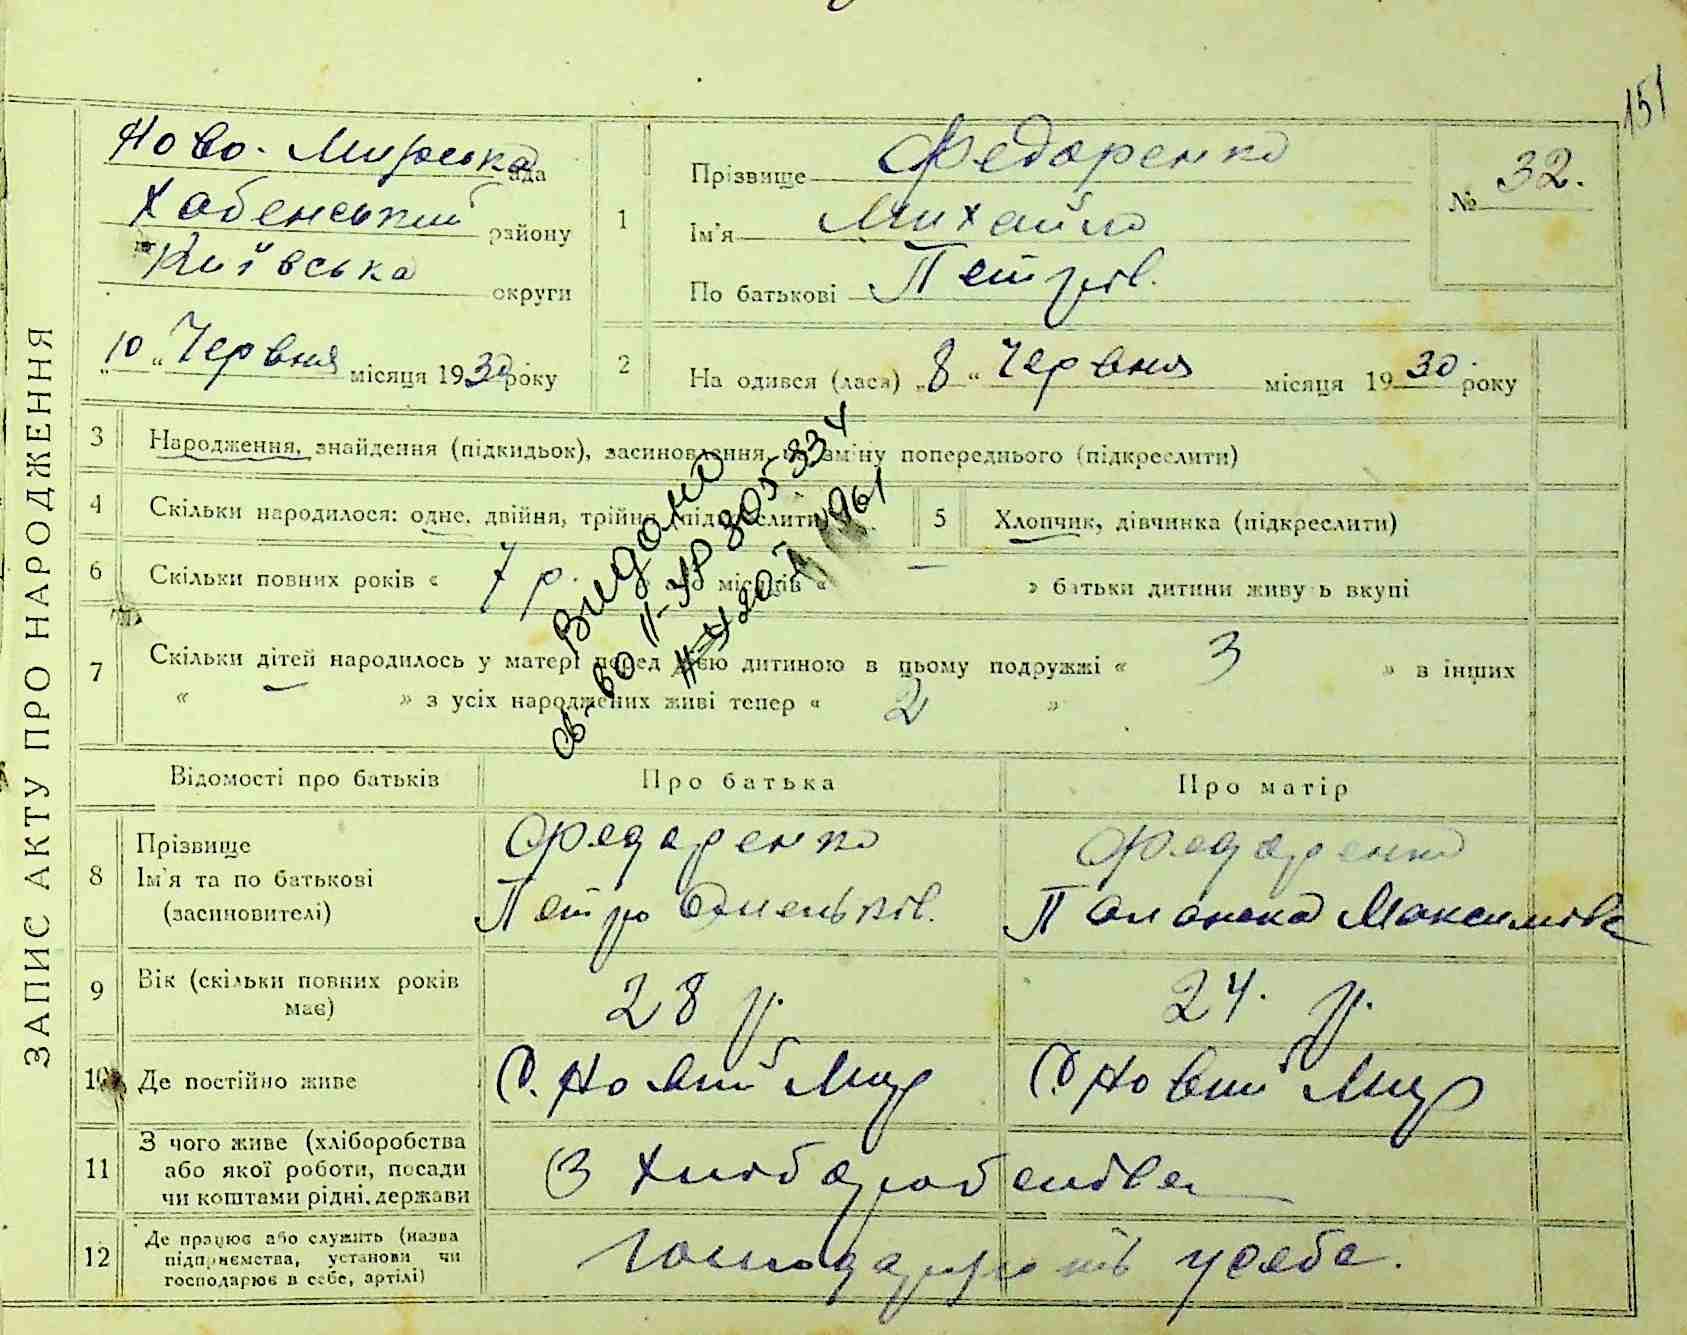 151
ЗАПИС АКТУ ПРО НАРОДЖЕННЯ
Ново-Мирська рада
Хабенський району
Київська округи
"10" Червня місяця 1930 року
1
Прізвище Федоренко
Ім'я Михайло
По батькові Петрів.
№ 32.
2
На одився (лася) "8" Червня місяця 1930 року
3 Народження, знайдення (підкидьок), засиновлення, зміну попереднього (підкреслити)
4 Скільки народилося: одне, двійня, трійня (підкреслити)
5 Хлопчик, дівчинка (підкреслити)
6 Скільки повних років « 7 р. » місяців « — » батьки дитини живуть вкупі
7 Скільки дітей народилось у матері перед цією дитиною в цьому подружжі « 3 » в інших
« — » з усіх народжених живі тепер « 2 »
Видано
св-во II-УР 305334
20 1961
Відомості про батьків Про батька Про матір
8 Прізвище
Ім'я та по батькові
(засиновителі)
Федаренко
Петро Омельків.
Федаренко
Паланека Максимівна
9 Вік (скільки повних років
має)
28 р.
24. р.
10 Де постійно живе
С. Новий Мир
С. Новий Мир
11 З чого живе (хліборобства
або якої роботи, посади
чи коштами рідні, держави
З хліборобства
12 Де працює або служить (назва
підприємства, установи чи
господарює в себе, артілі)
Господарюють у себе.